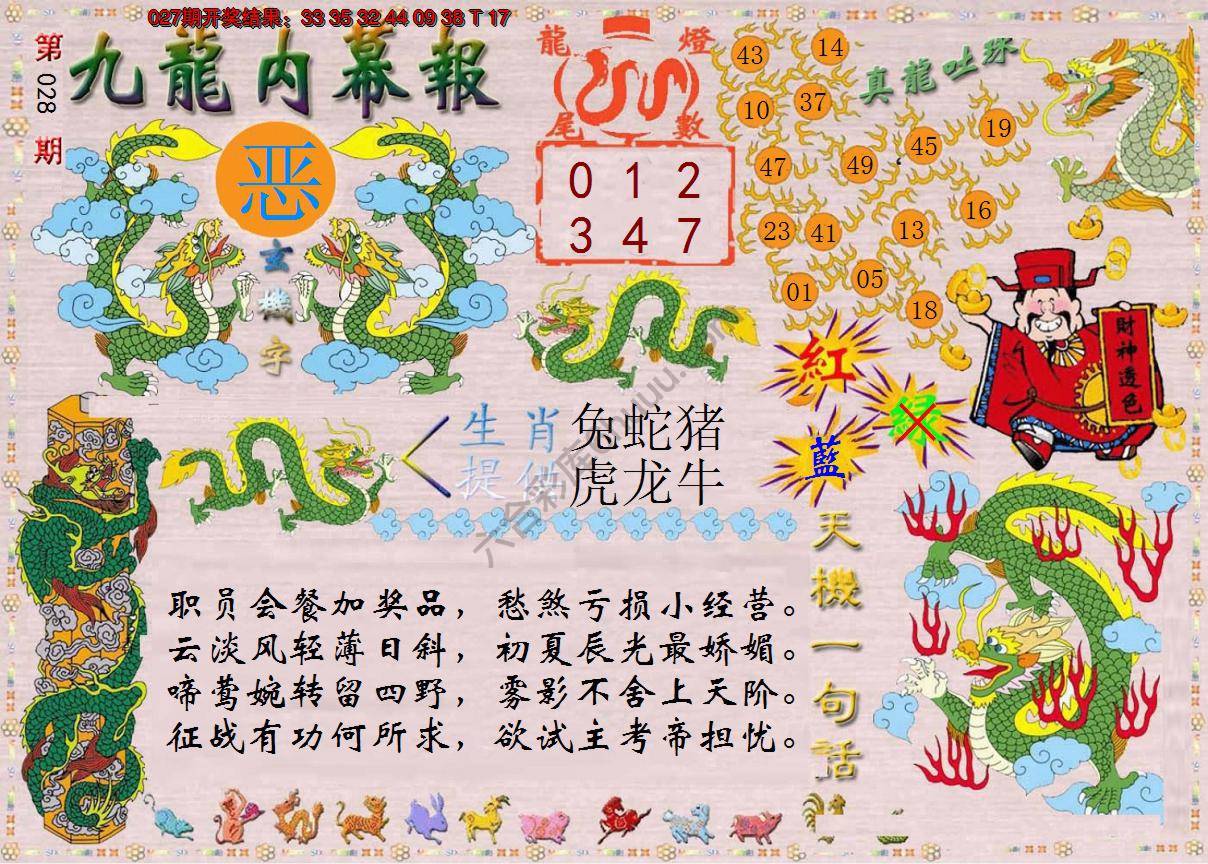 027期开奖结果：33 35 32 44 09 38 T 17
第028期
九龍内幕報
恶
玄機字
龍燈
尾數
0 1 2
3 4 7
真龍吐珠
43
14
10
37
19
45
47
49
16
23
41
13
05
01
18
紅
綠
藍
財神透色
生肖
提供
兔蛇猪
虎龙牛
天機一句話
职员会餐加奖品，愁煞亏损小经营。
云淡风轻薄日斜，初夏辰光最娇媚。
啼莺婉转留四野，雾影不舍上天阶。
征战有功何所求，欲试主考帝担忧。